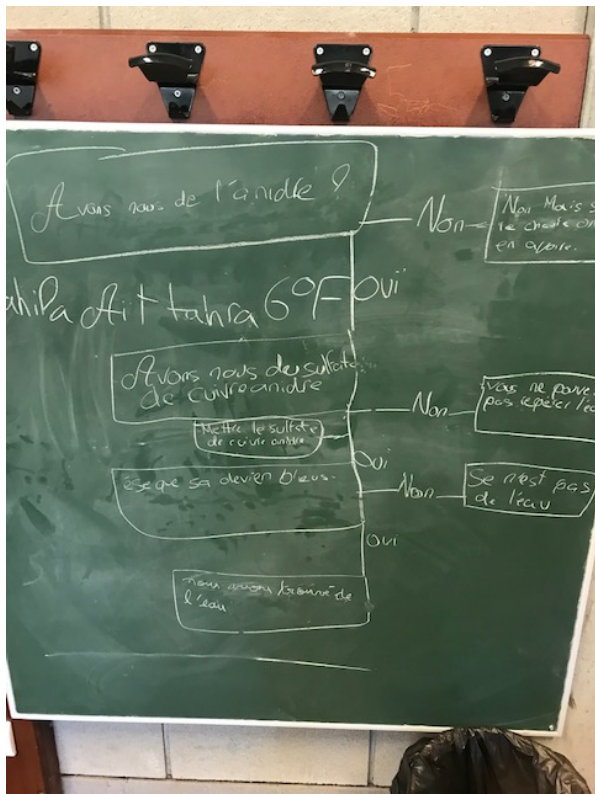 Avons nous de l'anidre ?
Non
Non Mais s
le chauffe on
en apaire.
Oui
ahiPa Ait tahra 6°F
Avons nous du sulfate
de cuivre anidre
Non
vous ne pouve
pas repérer l'ea
Mettre le sulfate
de cuivre anidre
Oui
ése que sa devien bleus.
Non
Se n'est pas
de l'eau
Oui
nous avons trouvé de
l'eau